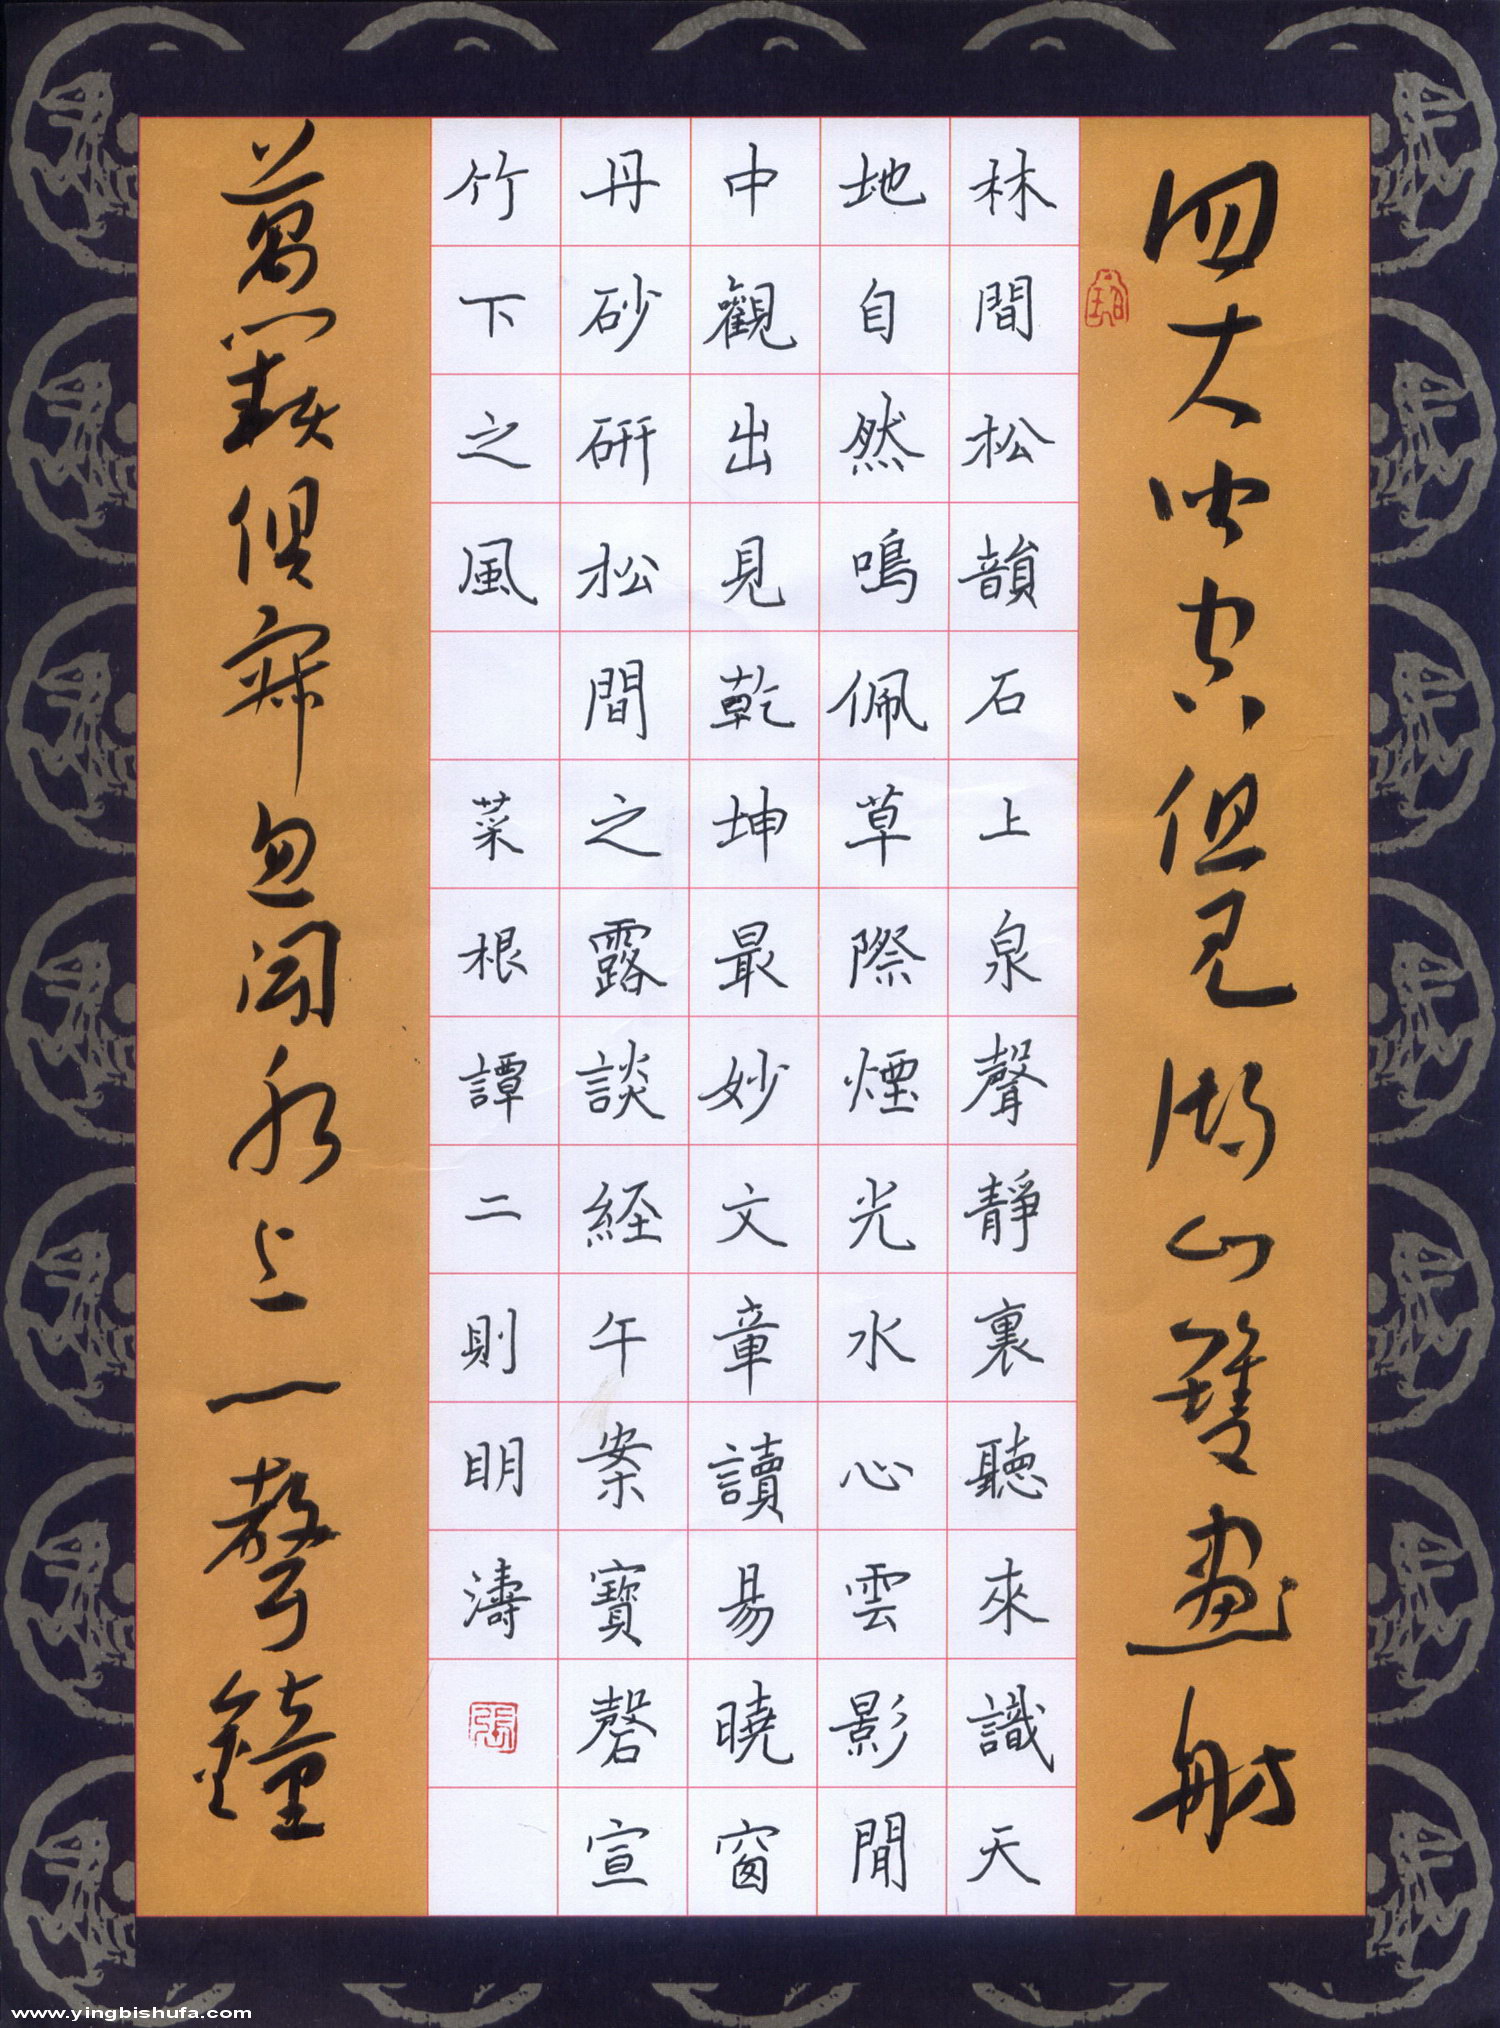 四大皆空但見湖山雙畫舫
林間松韻石上泉聲靜裏聽來識天
地自然鳴佩草際煙光水心雲影閒
中觀出見乾坤最妙文章讀易曉窗
丹砂研松間之露談経午案寶磬宣
竹下之風 菜根譚二則明濤
萬籟俱寂忽聞水上一聲鐘
www.yingbishufa.com